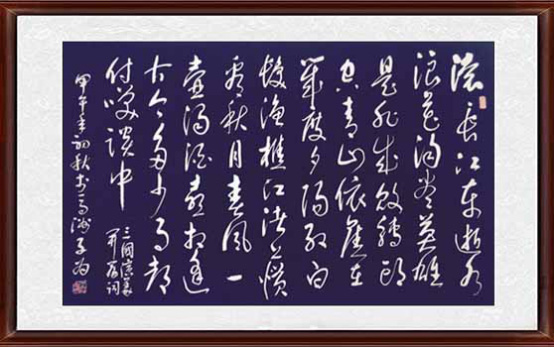 滚滚長江东逝水
浪花淘尽英雄
是非成敗转頭
空青山依舊在
几度夕阳红白
发渔樵江渚上惯
看秋月春风一
壶浊酒喜相逢
古今多少事都
付咲谈中
三国演义
开篇词
甲午年初秋书于